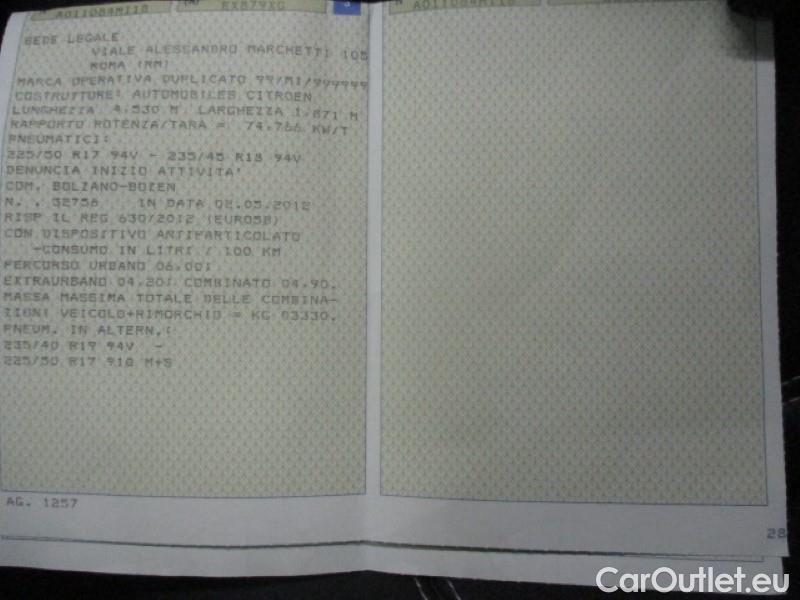 A011084MI18
(A)
EX879XG
3
A011084MI18
SEDE LEGALE
VIALE ALESSANDRO MARCHETTI 105
ROMA (RM)
MARCA OPERATIVA DUPLICATO 99/MI/999999
COSTRUTTORE: AUTOMOBILES CITROEN
LUNGHEZZA 4,530 M LARGHEZZA 1,871 M
RAPPORTO POTENZA/TARA = 74,766 KW/T
PNEUMATICI:
225/50 R17 94V - 235/45 R18 94V
DENUNCIA INIZIO ATTIVITA'
COM. BOLZANO-BOZEN
N. . 32756 IN DATA 02.05.2012
RISP IL REG 630/2012 (EURO5B)
CON DISPOSITIVO ANTIPARTICOLATO
-CONSUMO IN LITRI / 100 KM
PERCORSO URBANO 06.00;
EXTRAURBANO 04.20; COMBINATO 04.90.
MASSA MASSIMA TOTALE DELLE COMBINA-
ZIONI VEICOLO+RIMORCHIO = KG 03330.
PNEUM. IN ALTERN.:
235/40 R19 94V -
225/50 R17 91Q M+S
AG. 1257
28
CarOutlet.eu